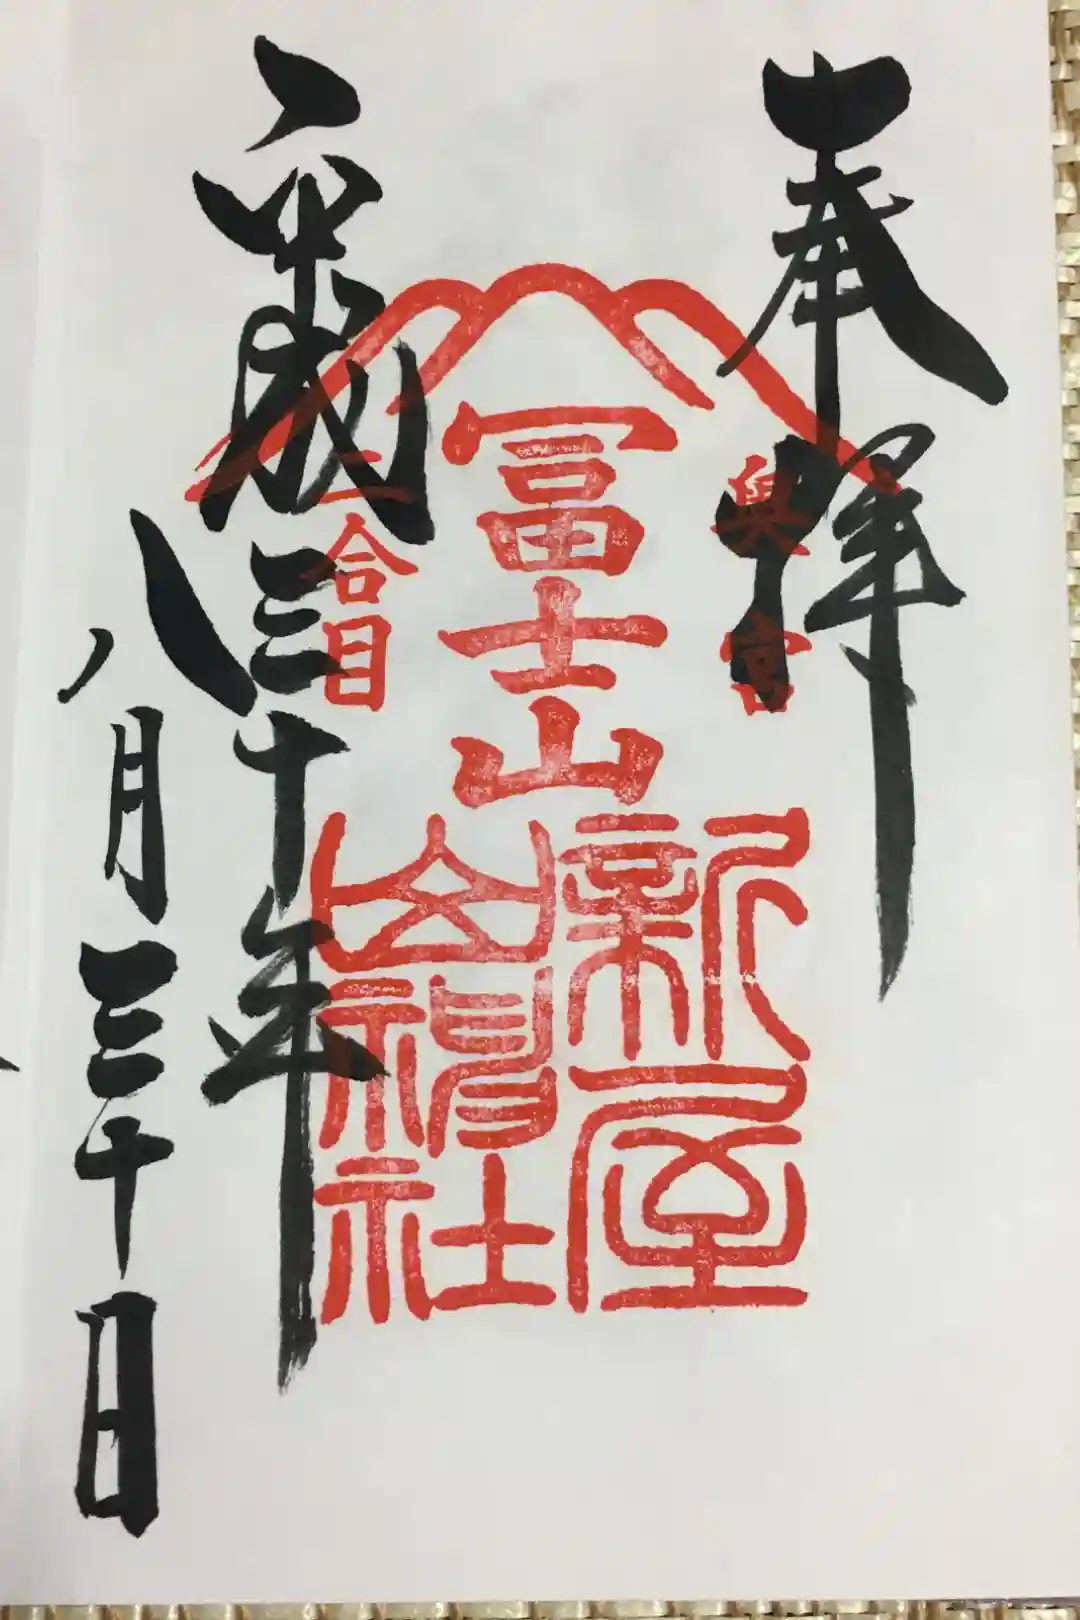 奉拝
奥宮
冨士山
新屋
山神社
二合目
平成三十年
八月三十日